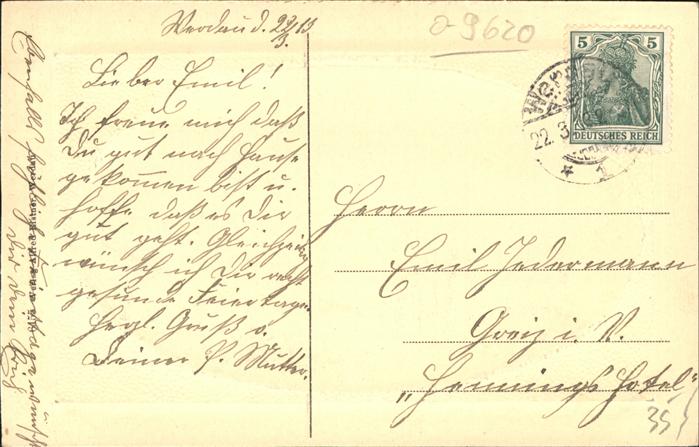 Werdau d. 22/3. 13
Lieber Emil!
Ich freue mich daß
Du gut nach Hause
gekommen bist u.
hoffe daß es Dir
gut geht. Gleichzeitig
wünsch ich Dir recht
gesunde Feiertage
Herzl. Gruß v.
Deiner P. Mutter.
9620
5 5
DEUTSCHES REICH
22. 3.
* 1
Herrn
Emil Jedermann
Greiz i. V.
„Hennings Hotel"
35